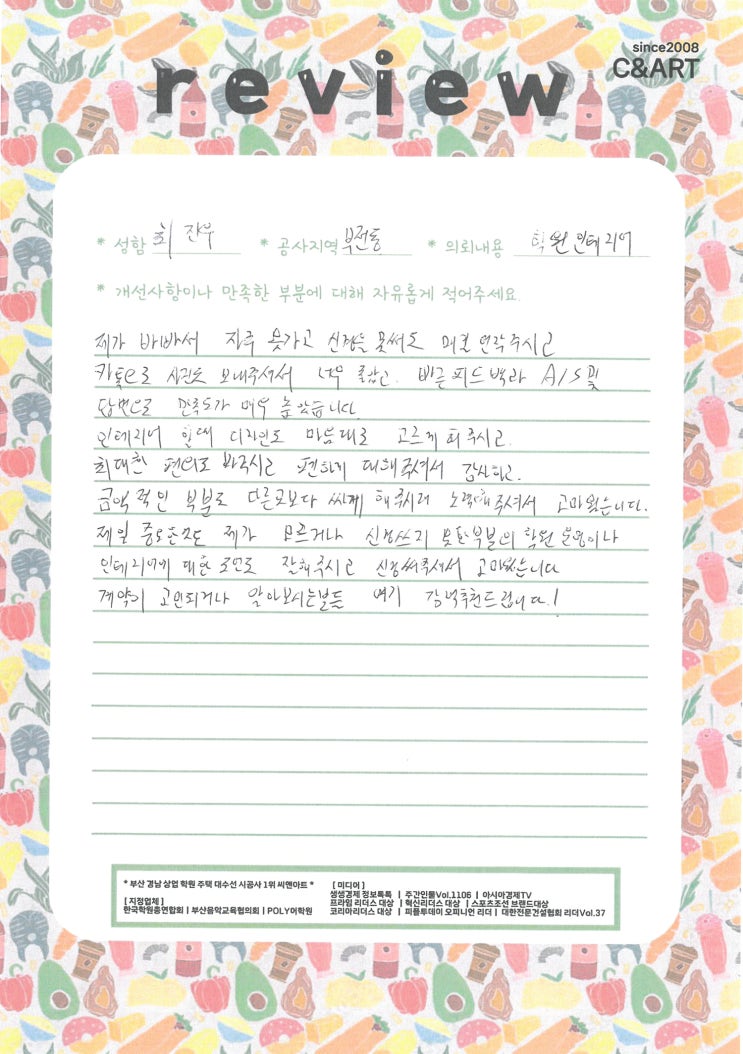 since2008
review
C&ART
* 성함 최 * 공사지역 부전동 * 의뢰내용 학원 인테리어
* 개선사항이나 만족한 부분에 대해 자유롭게 적어주세요.
제가 바빠서 자주 못가고 신경을 못써도 매일 연락주시고
카톡으로 사진도 보내주셔서 너무 좋았고. 빠른 피드백과 A/S 및
답변으로 만족도가 매우 높았습니다.
인테리어 형태 디자인도 마음대로 고르게 해 주시고.
최대한 편의도 봐주시고 편하게 대해주셔서 감사하고.
금액적인 부분도 다른곳보다 싸게 해주시려 노력해주셔서 고마웠습니다.
제일 중요한것도 제가 모르거나 신경쓰지 못한부분의 학원 운영이나
인테리어에 대한 조언도 잘해주시고 신경써주셔서 고마웠습니다
계약이 고민되거나 알아보시는분들 여기 강력추천드립니다!
* 부산 경남 상업 학원 주택 대수선 시공사 1위 씨앤아트 *
[ 지정업체 ]
한국학원총연합회 | 부산음악교육협의회 | POLY어학원
[ 미디어 ]
생생경제 정보톡톡 | 주간인물Vol.1106 | 아시아경제TV
프라임 리더스 대상 | 혁신리더스 대상 | 스포츠조선 브랜드대상
코리아리더스 대상 | 피플투데이 오피니언 리더 | 대한전문건설협회 리더Vol.37